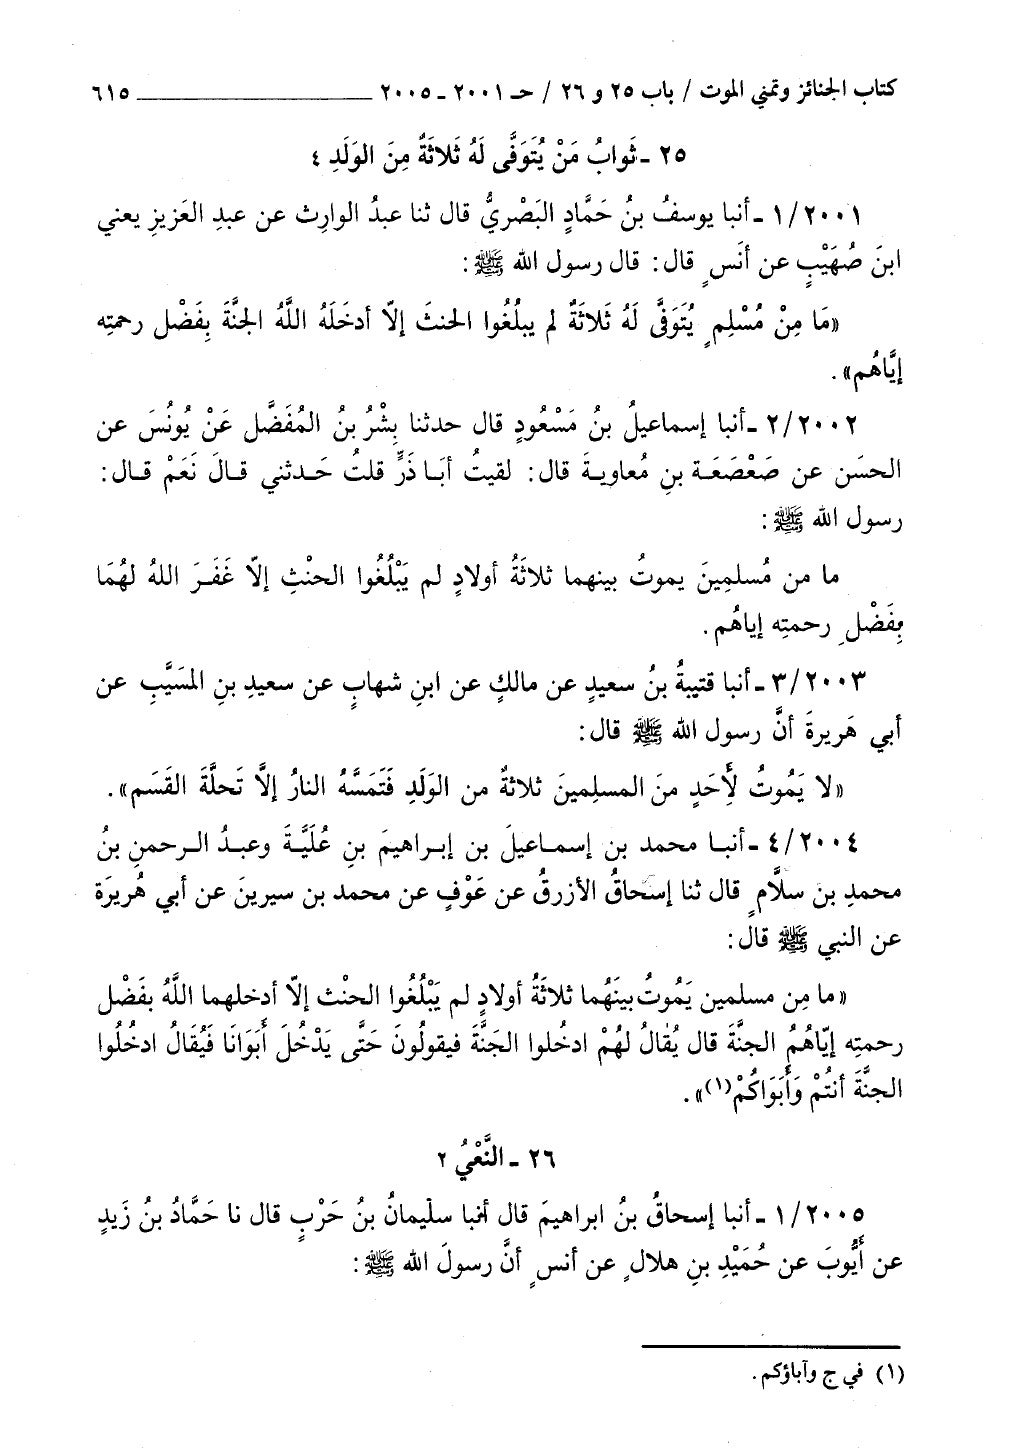 كتاب الجنائز وتمني الموت / باب ٢٥ و ٢٦ / حـ ٢٠٠١ ـ ٢٠٠٥ ــــــــــــــــ ٦١٥
٢٥ ـ ثَوابُ مَنْ يُتَوَفَّى لَهُ ثَلاثَةٌ مِنَ الوَلَدِ ٤
١/٢٠٠١ ـ أنبا يوسفُ بنُ حَمَّادٍ البَصْريُّ قال ثنا عبدُ الوارِث عن عبدِ العَزيزِ يعني
ابنَ صُهَيْبٍ عن أنَسٍ قال: قال رسول الله ﷺ:
«مَا مِنْ مُسْلِمٍ يُتَوَفَّى لَهُ ثَلاثَةٌ لم يبلُغوا الحنثَ إلاّ أدخَلَهُ اللَّهُ الجنَّةَ بِفَضْل رحمتِه
إيَّاهُم».
٢/٢٠٠٢ ـ أنبا إسماعيلُ بنُ مَسْعُودٍ قال حدثنا بِشْرُ بنُ المُفَضَّل عَنْ يُونُسَ عن
الحسَن عن صَعْصَعَة بنِ مُعاويةَ قال: لقيتُ أبَا ذَرٍّ قلتُ حَدثني قالَ نَعَمْ قال:
رسول الله ﷺ:
ما من مُسلمِينَ يموتُ بينهما ثلاثَةُ أولادٍ لم يَبْلُغُوا الحنْثِ إلاّ غَفَرَ اللهُ لهُمَا
بِفَضْلِ رحمتِه إياهُم.
٣/٢٠٠٣ ـ أنبا قتيبةُ بنُ سعيدٍ عن مالكٍ عن ابنِ شهابٍ عن سعيدِ بنِ المسَيَّبِ عن
أبي هَريرةَ أنَّ رسول الله ﷺ قال:
«لا يَمُوتُ لِأَحَدٍ منَ المسلِمينَ ثلاثةٌ من الوَلَدِ فَتَمَسَّهُ النارُ إلاَّ تَحلَّةَ القَسَم».
٤/٢٠٠٤ ـ أنبا محمد بن إسماعيلَ بن إبراهيمَ بنِ عُلَيَّةَ وعبدُ الرحمنِ بنُ
محمدِ بن سلَّامٍ قال ثنا إسحاقُ الأزرقُ عن عَوْفٍ عن محمد بن سيرينَ عن أبي هُريرَة
عن النبي ﷺ قال:
«ما مِن مسلمين يَمُوتُ بينَهُما ثلاثَةُ أولادٍ لم يَبْلُغُوا الحنْث إلاّ أدخلهما اللَّهُ بفَضْل
رحمتِه إيّاهُمُ الجنَّةَ قال يُقالُ لهُمْ ادخُلوا الجَنَّةَ فيقولُونَ حَتَّى يَدْخُلَ أَبَوَانَا فَيُقَالُ ادخُلُوا
الجنَّةَ أنتُمْ وَأَبَوَاكُمْ(١)».
٢٦ ـ النَّعْيُ ٢
١/٢٠٠٥ ـ أنبا إسحاقُ بنُ ابراهيمَ قال أنبا سلْيمانُ بنُ حَرْبٍ قال نا حَمَّادُ بنُ زَيدٍ
عن أَيُّوبَ عن حُمَيْدِ بنِ هلالٍ عن أنسٍ أنَّ رسولَ الله ﷺ:
(١) في ج وآباؤكم.